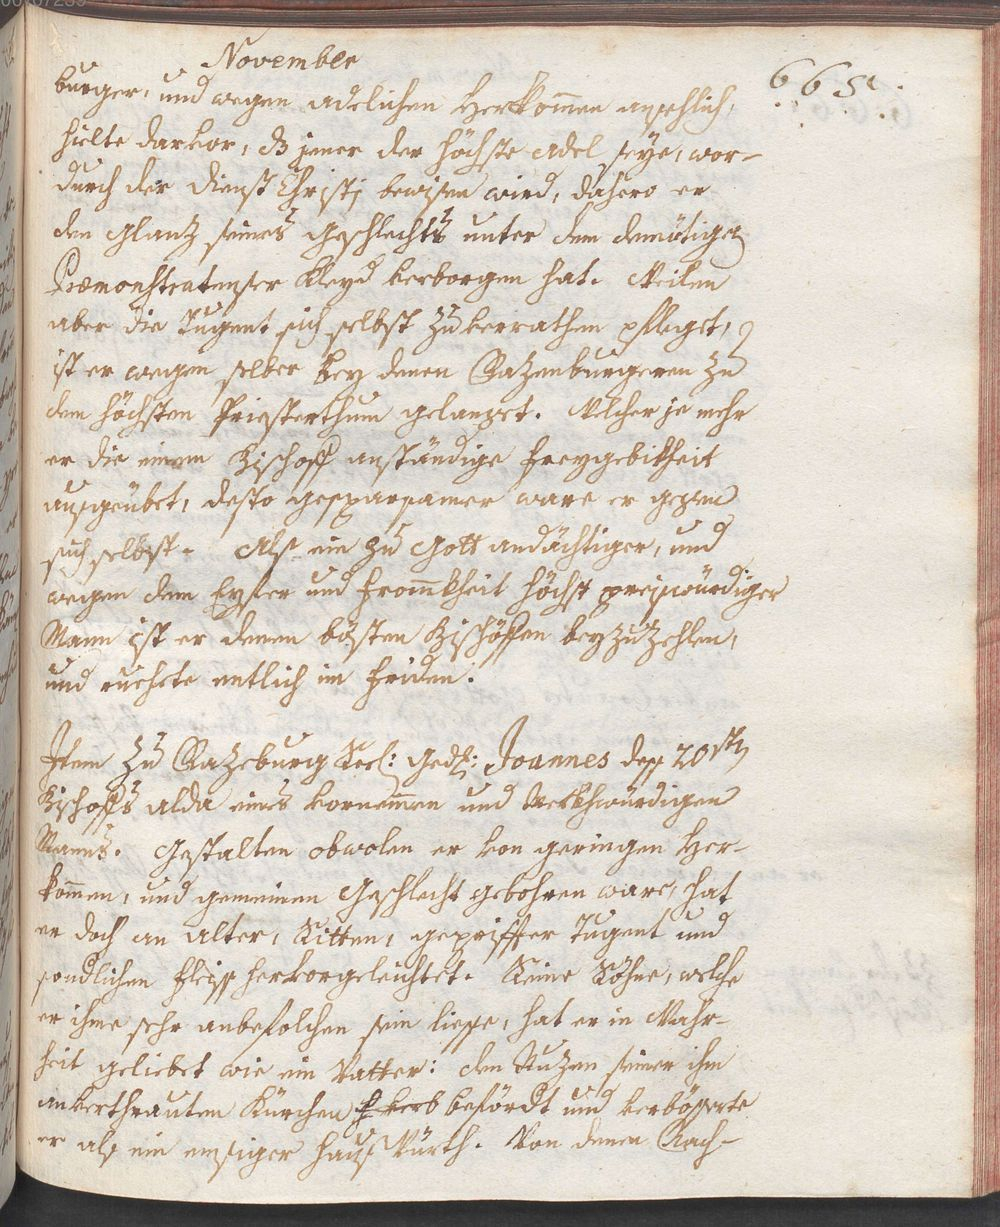 November
665.
burger, und wegen adelichen Herkom̄en ansehlich,
hielte darvor, dz jener der höchste Adel seye, wor-
durch der Dienst Christj bewisen wird, dahero er
den Glantz seines Geschlechts unter dem demütigen
Præmonstratenser Kleyd verborgen hat. Weilen
aber die Tugent sich selbst zu verrathen pfleget,
ist er wegen selber bey denen Razenburgeren zu
dem höchsten Priesterthum gelanget. Welcher je mehr
er die einem Bischoff anständige Freygebikheit
ausgeübet, desto gesparsamer ware er gegen
sich selbst. Als ein zu Gott andächtiger, und
wegen dem Eyffer und From̄kheit höchst preiswürdiger
Mann ist er denen bösten Bischöffen beyzuzehlen,
und ruehete entlich im Friden.
Item zu Razeburg Seel: Ged: Joannes dess 20stn
Bischoffs alda eines vornem̄en und Merkhwürdigen
Manns. Gestalten obwolen er von geringen Her-
kom̄en, und gemeinen Geschlecht gebohren ware, hat
er doch an Alter, Sitten, gepriffter Tugent und
sondlichen Fleiss hervorgeleichtet. Seine Söhne, welche
er ihme sehr anbefolchen sein liesse, hat er in Wahr-
heit geliebet wie ein Vatter: den Nuzen seiner ihm
anverthrauten Kürchen beförd̄t und verbösserte
er als ein emsiger Hauss Würth. Von denen Nach-